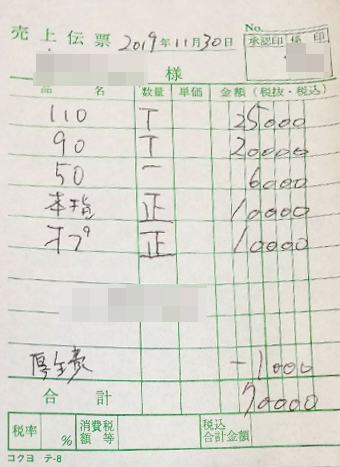 No.
売上伝票 2019年11月30日 承認印 係印
様
品名 数量 単価 金額(税抜・税込)
110 T 25000
90 T 20000
50 一 6000
本指 正 10000
オプ 正 10000
厚生費 -1000
合計 70000
税率 % 消費税額等 税込合計金額
コクヨ テ-8